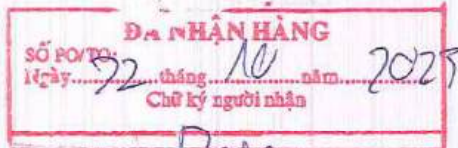 ĐÃ NHẬN HÀNG
SỐ PO/TO:
Ngày..........tháng 10 năm 2023
Chữ ký người nhận